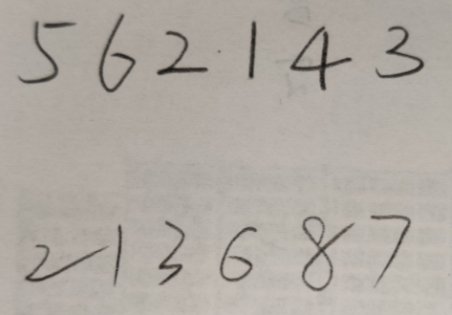 562143
213687